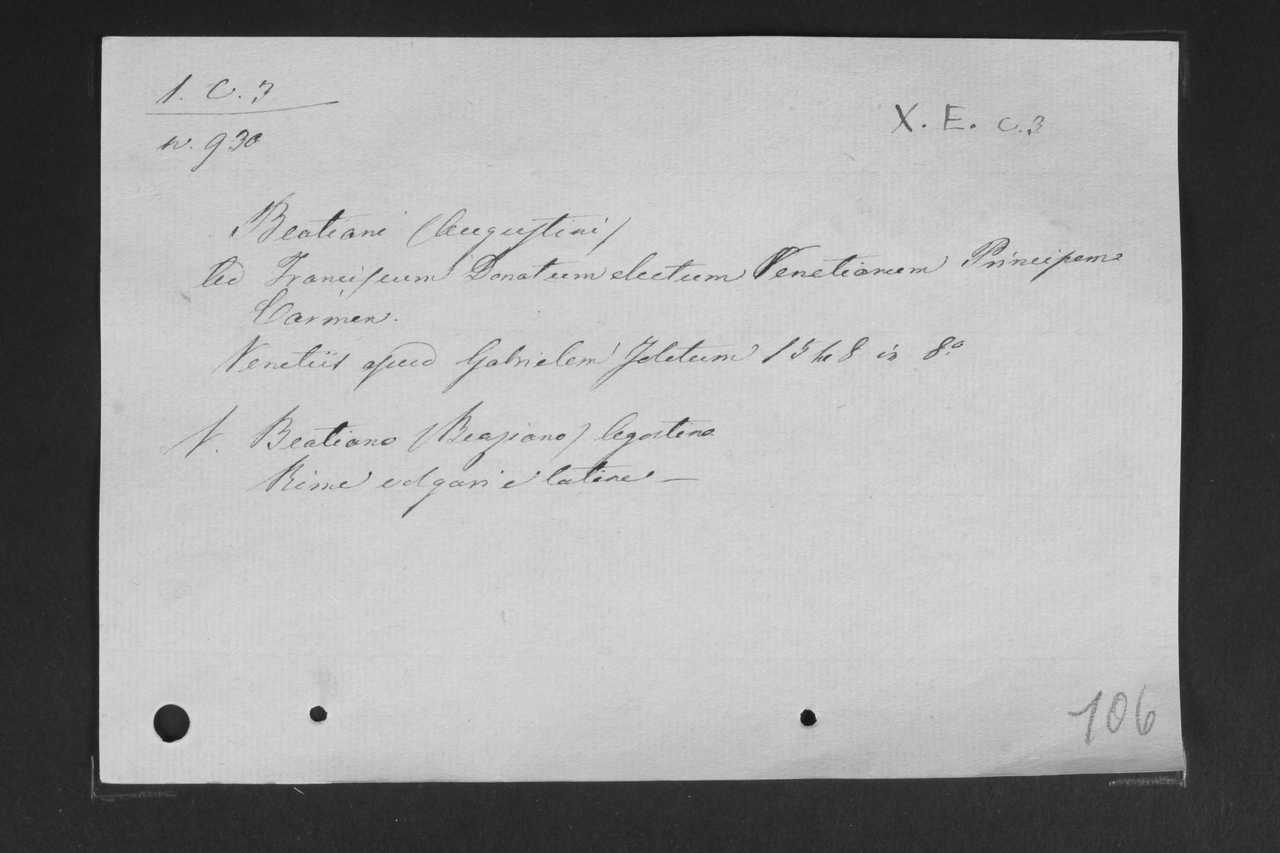 1. C. 3
n. 930
X. E. C.3
Beatiani (Augustini)
Ad Franciscum Donatum electum Venetiarum Principem
Carmen.
Venetiis apud Gabrielem Jolitum 1548 in 8.o
V. Beatiano (Beaziano) Agostino
Rime volgari e latine —
106